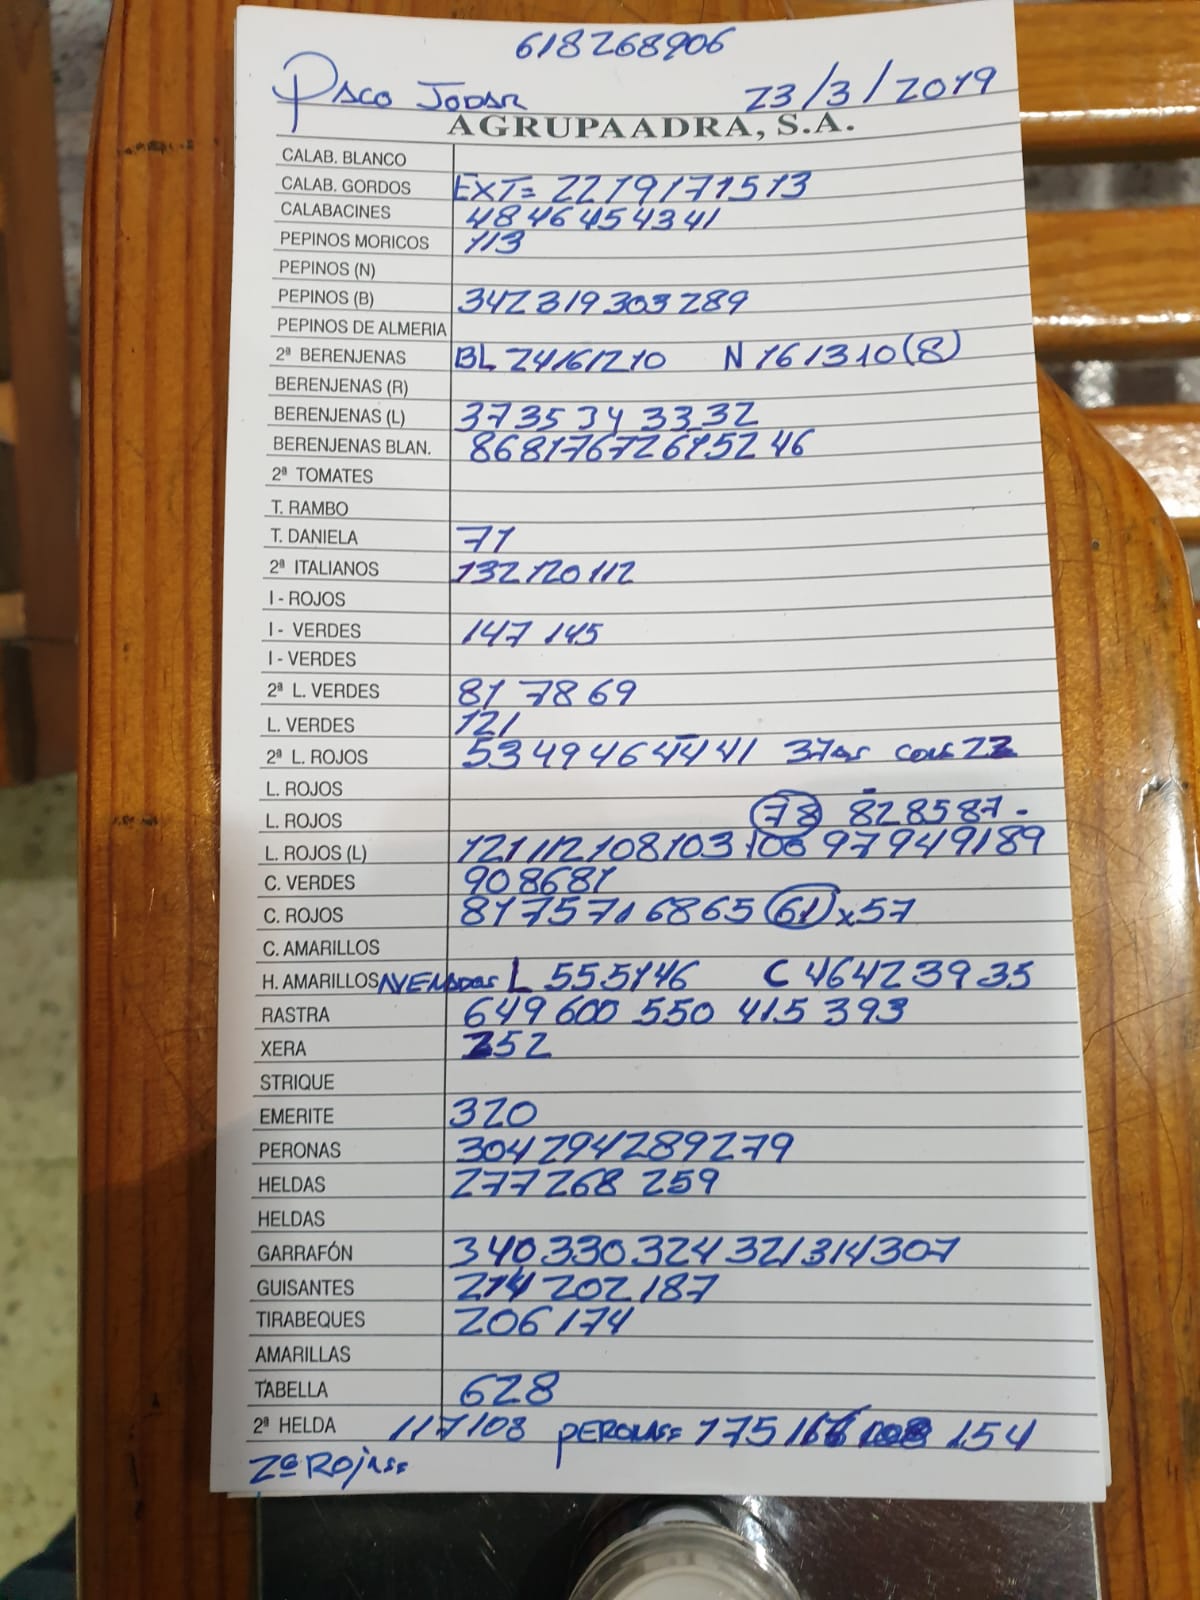 618268906
Paco Jodar 23/3/2019
AGRUPAADRA, S.A.
CALAB. BLANCO
CALAB. GORDOS EXT= 22 19 17 15 13
CALABACINES 48 46 45 43 41
PEPINOS MORICOS 113
PEPINOS (N)
PEPINOS (B) 342 319 303 289
PEPINOS DE ALMERIA
2ª BERENJENAS BL 24 16 12 10 N 16 13 10 (8)
BERENJENAS (R)
BERENJENAS (L) 37 35 34 33 32
BERENJENAS BLAN. 86 81 76 72 61 52 46
2ª TOMATES
T. RAMBO
T. DANIELA 71
2ª ITALIANOS 132 120 112
I - ROJOS
I - VERDES 147 145
I - VERDES
2ª L. VERDES 81 78 69
L. VERDES 121
2ª L. ROJOS 53 49 46 44 41 37
L. ROJOS
L. ROJOS 78 82 85 87 -
L. ROJOS (L) 121 112 108 103 100 97 94 91 89
C. VERDES 90 86 81
C. ROJOS 81 75 71 68 65 61 x 57
C. AMARILLOS
H. AMARILLOS L 55 51 46 C 46 42 39 35
RASTRA 649 600 550 415 393
XERA 252
STRIQUE
EMERITE 320
PERONAS 304 294 289 279
HELDAS 277 268 259
HELDAS
GARRAFÓN 340 330 324 321 314 307
GUISANTES 214 202 187
TIRABEQUES 206 174
AMARILLAS
TABELLA 628
2ª HELDA 117 108 175 154
2ª Rojas=